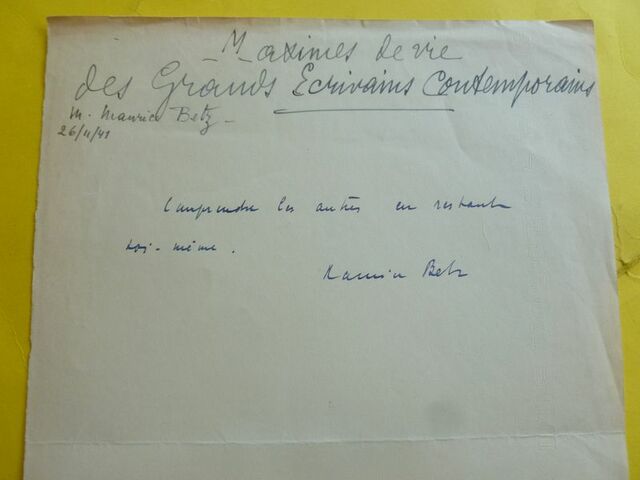 Maximes de vie
des Grands Ecrivains Contemporains
M. Maurice Betz
26/11/41
Comprendre les autres en restant
soi-même.
Maurice Betz